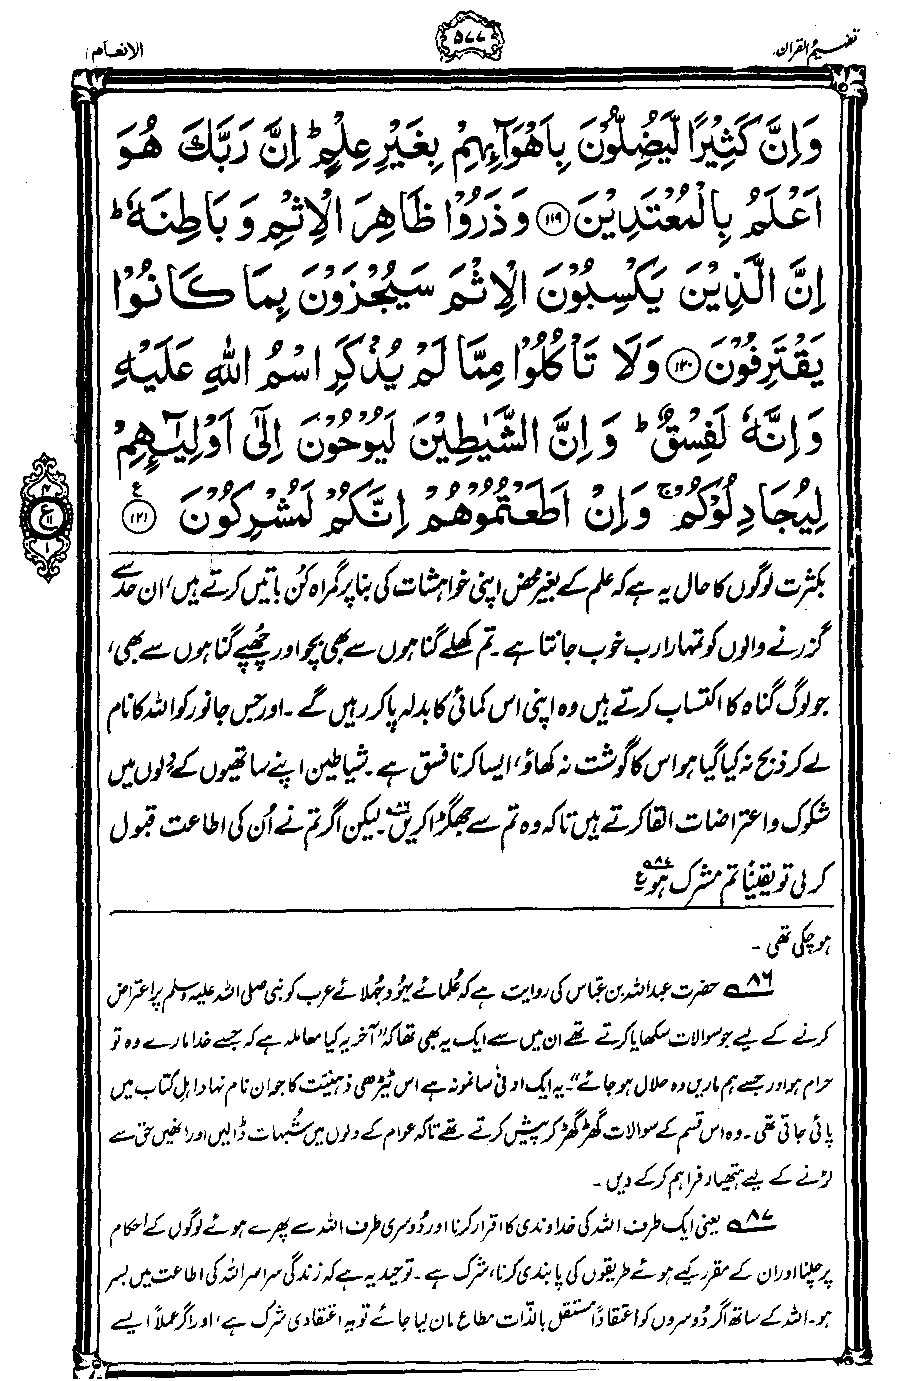 تفہیم القرآن
۵۷۷
الانعام
وَاِنَّ كَثِيْرًا لَّيُضِلُّوْنَ بِاَهْوَآىِٕهِمْ بِغَيْرِ عِلْمٍ ؕ اِنَّ رَبَّكَ هُوَ
اَعْلَمُ بِالْمُعْتَدِيْنَ ۝۱۱۹ وَذَرُوْا ظَاهِرَ الْاِثْمِ وَبَاطِنَهٗ ؕ
اِنَّ الَّذِيْنَ يَكْسِبُوْنَ الْاِثْمَ سَيُجْزَوْنَ بِمَا كَانُوْا
يَقْتَرِفُوْنَ ۝۱۲۰ وَلَا تَاْكُلُوْا مِمَّا لَمْ يُذْكَرِ اسْمُ اللّٰهِ عَلَيْهِ
وَاِنَّهٗ لَفِسْقٌ ؕ وَاِنَّ الشَّيٰطِيْنَ لَيُوْحُوْنَ اِلٰۤى اَوْلِيٰٓـِٕهِمْ
لِيُجَادِلُوْكُمْ ۚ وَاِنْ اَطَعْتُمُوْهُمْ اِنَّكُمْ لَمُشْرِكُوْنَ ۝۱۲۱ ع
بکثرت لوگوں کا حال یہ ہے کہ علم کے بغیر محض اپنی خواہشات کی بنا پر گمراہ کُن باتیں کرتے ہیں، ان حد سے
گزرنے والوں کو تمہارا رب خوب جانتا ہے۔ تم کھلے گناہوں سے بھی بچو اور چھپے گناہوں سے بھی،
جو لوگ گناہ کا اکتساب کرتے ہیں وہ اپنی اس کمائی کا بدلہ پا کر رہیں گے۔ اور جس جانور کو اللہ کا نام
لے کر ذبح نہ کیا گیا ہو اس کا گوشت نہ کھاؤ، ایسا کرنا فسق ہے۔ شیاطین اپنے ساتھیوں کے دلوں میں
شکوک و اعتراضات القا کرتے ہیں تاکہ وہ تم سے جھگڑا کریں۸۶۔ لیکن اگر تم نے اُن کی اطاعت قبول
کر لی تو یقیناً تم مشرک ہو۸۷ ع
ہو چکی تھی۔
۸۶ حضرت عبداللہ بن عباس کی روایت ہے کہ عُلمائے یہود جُہلائے عرب کو نبی صلی اللہ علیہ وسلم پر اعتراض
کرنے کے لیے جو سوالات سکھایا کرتے تھے ان میں سے ایک یہ بھی تھا کہ ”آخر یہ کیا معاملہ ہے کہ جسے خدا مارے وہ تو
حرام ہو اور جسے ہم ماریں وہ حلال ہو جائے“۔ یہ ایک ادنیٰ سا نمونہ ہے اس ٹیڑھی ذہنیت کا جو ان نام نہاد اہل کتاب میں
پائی جاتی تھی۔ وہ اس قسم کے سوالات گھڑ گھڑ کر پیش کرتے تھے تاکہ عوام کے دلوں میں شُبہات ڈالیں اور انھیں حق سے
لڑنے کے لیے ہتھیار فراہم کر کے دیں۔
۸۷ یعنی ایک طرف اللہ کی خداوندی کا اقرار کرنا اور دُوسری طرف اللہ سے پھرے ہوئے لوگوں کے احکام
پر چلنا اور ان کے مقرر کیے ہوئے طریقوں کی پابندی کرنا، شرک ہے۔ توحید یہ ہے کہ زندگی سراسر اللہ کی اطاعت میں بسر
ہو۔ اللہ کے ساتھ اگر دُوسروں کو اعتقاداً مستقل بالذات مطاع مان لیا جائے تو یہ اعتقادی شرک ہے، اور اگر عملاً ایسے